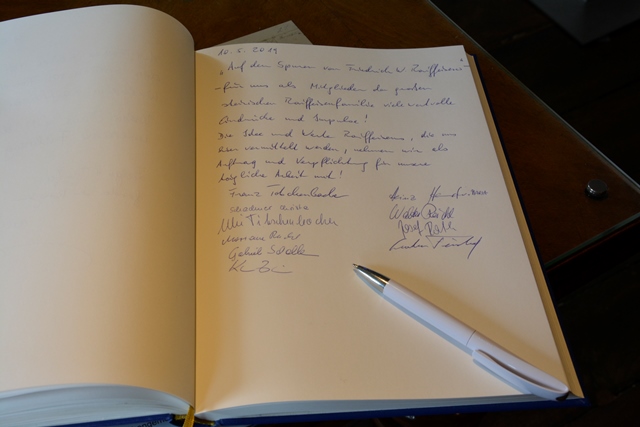 10. 5. 2019
"Auf den Spuren von Friedrich W. Raiffeisen" -
- für uns als Mitglieder der großen
steirischen Raiffeisenfamilie viele wertvolle
Eindrücke und Impulse!
Die Idee und Werte Raiffeisens, die uns
hier vermittelt werden, nehmen wir als
Auftrag und Verpflichtung für unsere
tägliche Arbeit mit!
Franz Titschenbacher
Titschenbacher
Walter
Josef
Gabriele